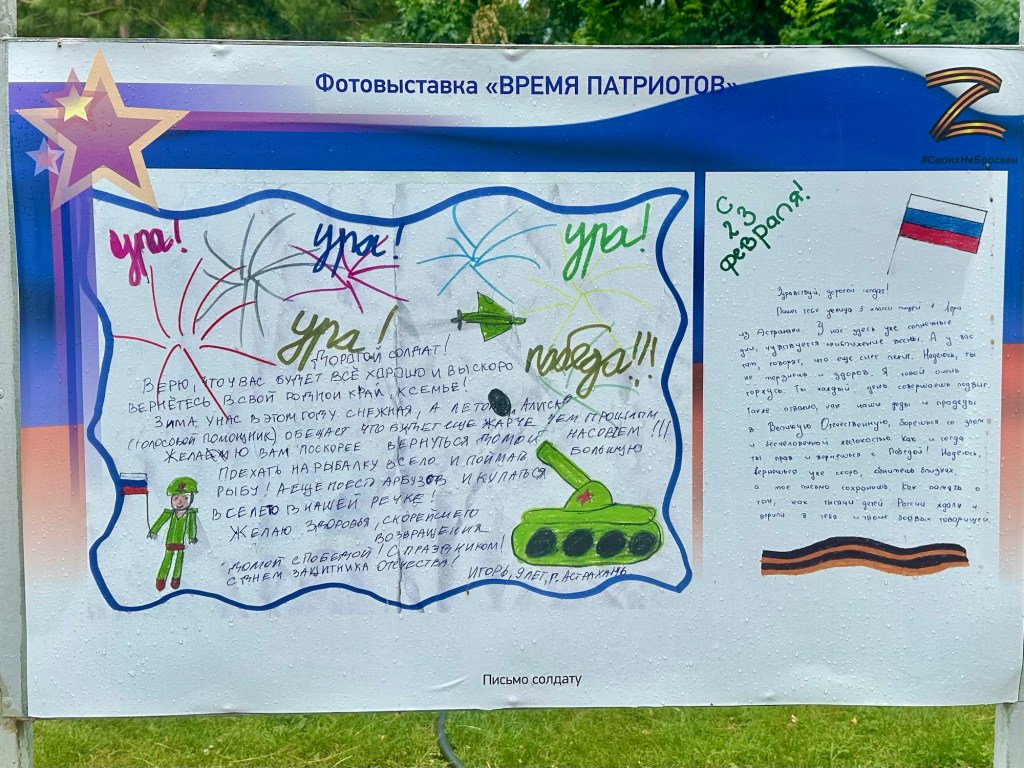 Фотовыставка «ВРЕМЯ ПАТРИОТОВ»
#СвоихНеБросаем
ура!
ура!
ура!
ура!
победа!!!
ДОРОГОЙ СОЛДАТ!
ВЕРЮ, ЧТО У ВАС БУДЕТ ВСЁ ХОРОШО И ВЫ СКОРО
ВЕРНЁТЕСЬ В СВОЙ РОДНОЙ КРАЙ, К СЕМЬЕ!
ЗИМА У НАС В ЭТОМ ГОДУ СНЕЖНАЯ, А ЛЕТОМ, АЛИСКА
(ГОЛОСОВОЙ ПОМОЩНИК) ОБЕЩАЕТ ЧТО БУДЕТ ЕЩЕ ЖАРЧЕ ЧЕМ ПРОШЛЫМ
ЖЕЛАЮ ВАМ ПОСКОРЕЕ ВЕРНУТЬСЯ ДОМОЙ НАСОВСЕМ!!!
ПОЕХАТЬ НА РЫБАЛКУ В СЕЛО И ПОЙМАЙ БОЛЬШУЮ
РЫБУ! А ЕЩЕ ПОЕСТЬ АРБУЗОВ И КУПАТЬСЯ
ВСЕ ЛЕТО В НАШЕЙ РЕЧКЕ!
ЖЕЛАЮ ЗДОРОВЬЯ, СКОРЕЙШЕГО
ВОЗВРАЩЕНИЯ
ДОМОЙ С ПОБЕДОЙ! С ПРАЗДНИКОМ!
С ДНЕМ ЗАЩИТНИКА ОТЕЧЕСТВА!
ИГОРЬ, 9 ЛЕТ, Г. АСТРАХАНЬ
С
23
февраля!
Здравствуй, дорогой солдат!
Пишет тебе ученица 5 класса лицея 1 Вера
из Астрахани. У нас здесь уже солнечные
дни, чувствуется приближение весны. А у вас
там, говорят, что еще снег лежит. Надеюсь, ты
не мерзнешь и здоров. Я тобой очень
горжусь. Ты каждый день совершаешь подвиг.
Также отважно, как наши деды и прадеды
в Великую Отечественную, борешься со злом
и бесчеловечной жестокостью. Как и тогда
ты прав и вернешься с Победой! Надеюсь,
вернешься уже скоро, обнимешь близких,
а мое письмо сохранишь. Как память о
том, как тысячи детей России ждали и
верили в тебя и твоих боевых товарищей.
Письмо солдату